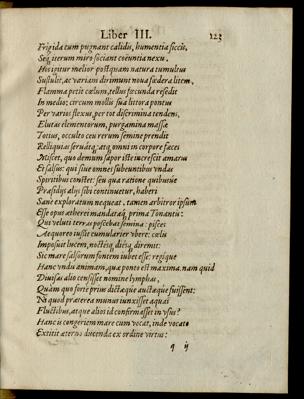 Liber III. 123
Frigida cum pugnant calidis, humentia siccis,
Seq́; iterum miro sociant coeuntia nexu.
Hos igitur melior postquam natura tumultus
Sustulit, ac variam dirimunt noua fœdera litem,
Flamma petit cœlum, tellus fœcunda resedit
In medio; circum mollis sua littora pontus
Per varios flexus, per tot discrimina tendens,
Elutas elementorum, purgamina massæ
Totius, occulto ceu rerum semine prendit
Relliquias seruátq; atq; omni in corpore faces
Miscet, quo demum sapor iste increscit amarus
Et salsus: qui siue omnes subeuntibus vndas
Spiritibus constet: seu qua ratione quibusue
Præsidiis aliis sibi continuetur, haberi
Sane exploratum nequeat. tamen arbitror ipsum
Esse opus ætheree mandataq́; prima Tonantis:
Qui veluti terras poscebat semina: pisces
Aequoreo iussit cumularier vbere: cœlis
Imposuit lucem, noctéq; diéq; diremit:
Sic mare salsorum fontem iubet esse: reqique
Hanc vndis animam, qua ponto est maxima. nam quid
Diuisse alio censisset nomine lymphas,
Quàm quo forte prius dictæque auctæque fuissent:
Ni quod præterea munus iunxisset aquai
Fluctibus, atque alios id confirmasset in vsus?
Hanc is congeriem mare cum vocat, inde vocato
Extitit æterno ducenda ex ordine virtus:
q ij